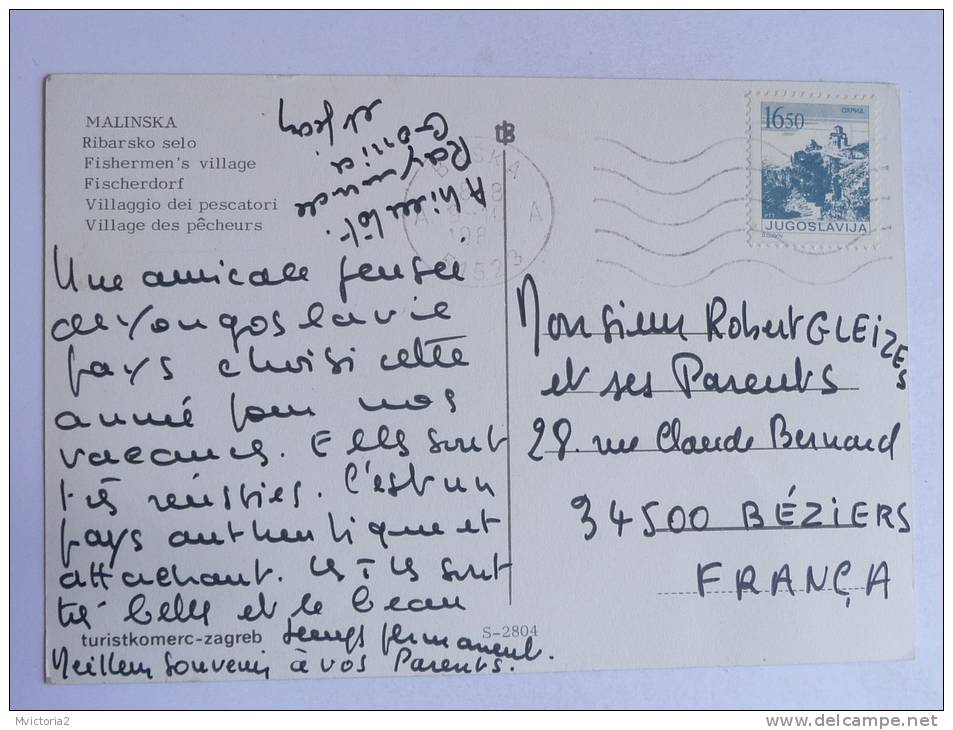 MALINSKA
Ribarsko selo
Fishermen's village
Fischerdorf
Villaggio dei pescatori
Village des pêcheurs
A bientôt.
Raymonde
et Jean
Une amicale pensée
de Yougoslavie
pays choisi cette
année pour nos
vacances. Elles sont
très réussies. C'est un
pays authentique et
attachant. Les îles sont
très belles et le beau
temps permanent.
Meilleur souvenir à vos Parents.
turistkomerc-zagreb
S-2804
16.50
ОХРИД
JUGOSLAVIJA
51523
Monsieur Robert GLEIZES
et ses Parents
28. rue Claude Bernard
34500 BÉZIERS
FRANÇA
Mvictoria2
www.delcampe.net